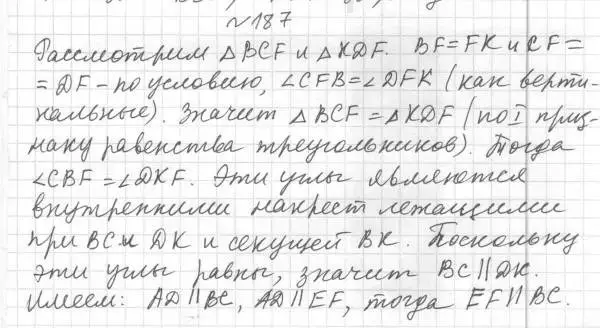 №187
Рассмотрим △BCF и △KDF. BF=FK и CF=
=DF - по условию, ∠CFB=∠DFK (как верти-
кальные). Значит △BCF=△KDF (по I приз-
наку равенства треугольников). Тогда
∠CBF=∠DKF. Эти углы являются
внутренними накрест лежащими
при BC и DK и секущей BK. Поскольку
эти углы равны, значит BC||DK.
Имеем: AD||BC, AD||EF, тогда EF||BC.